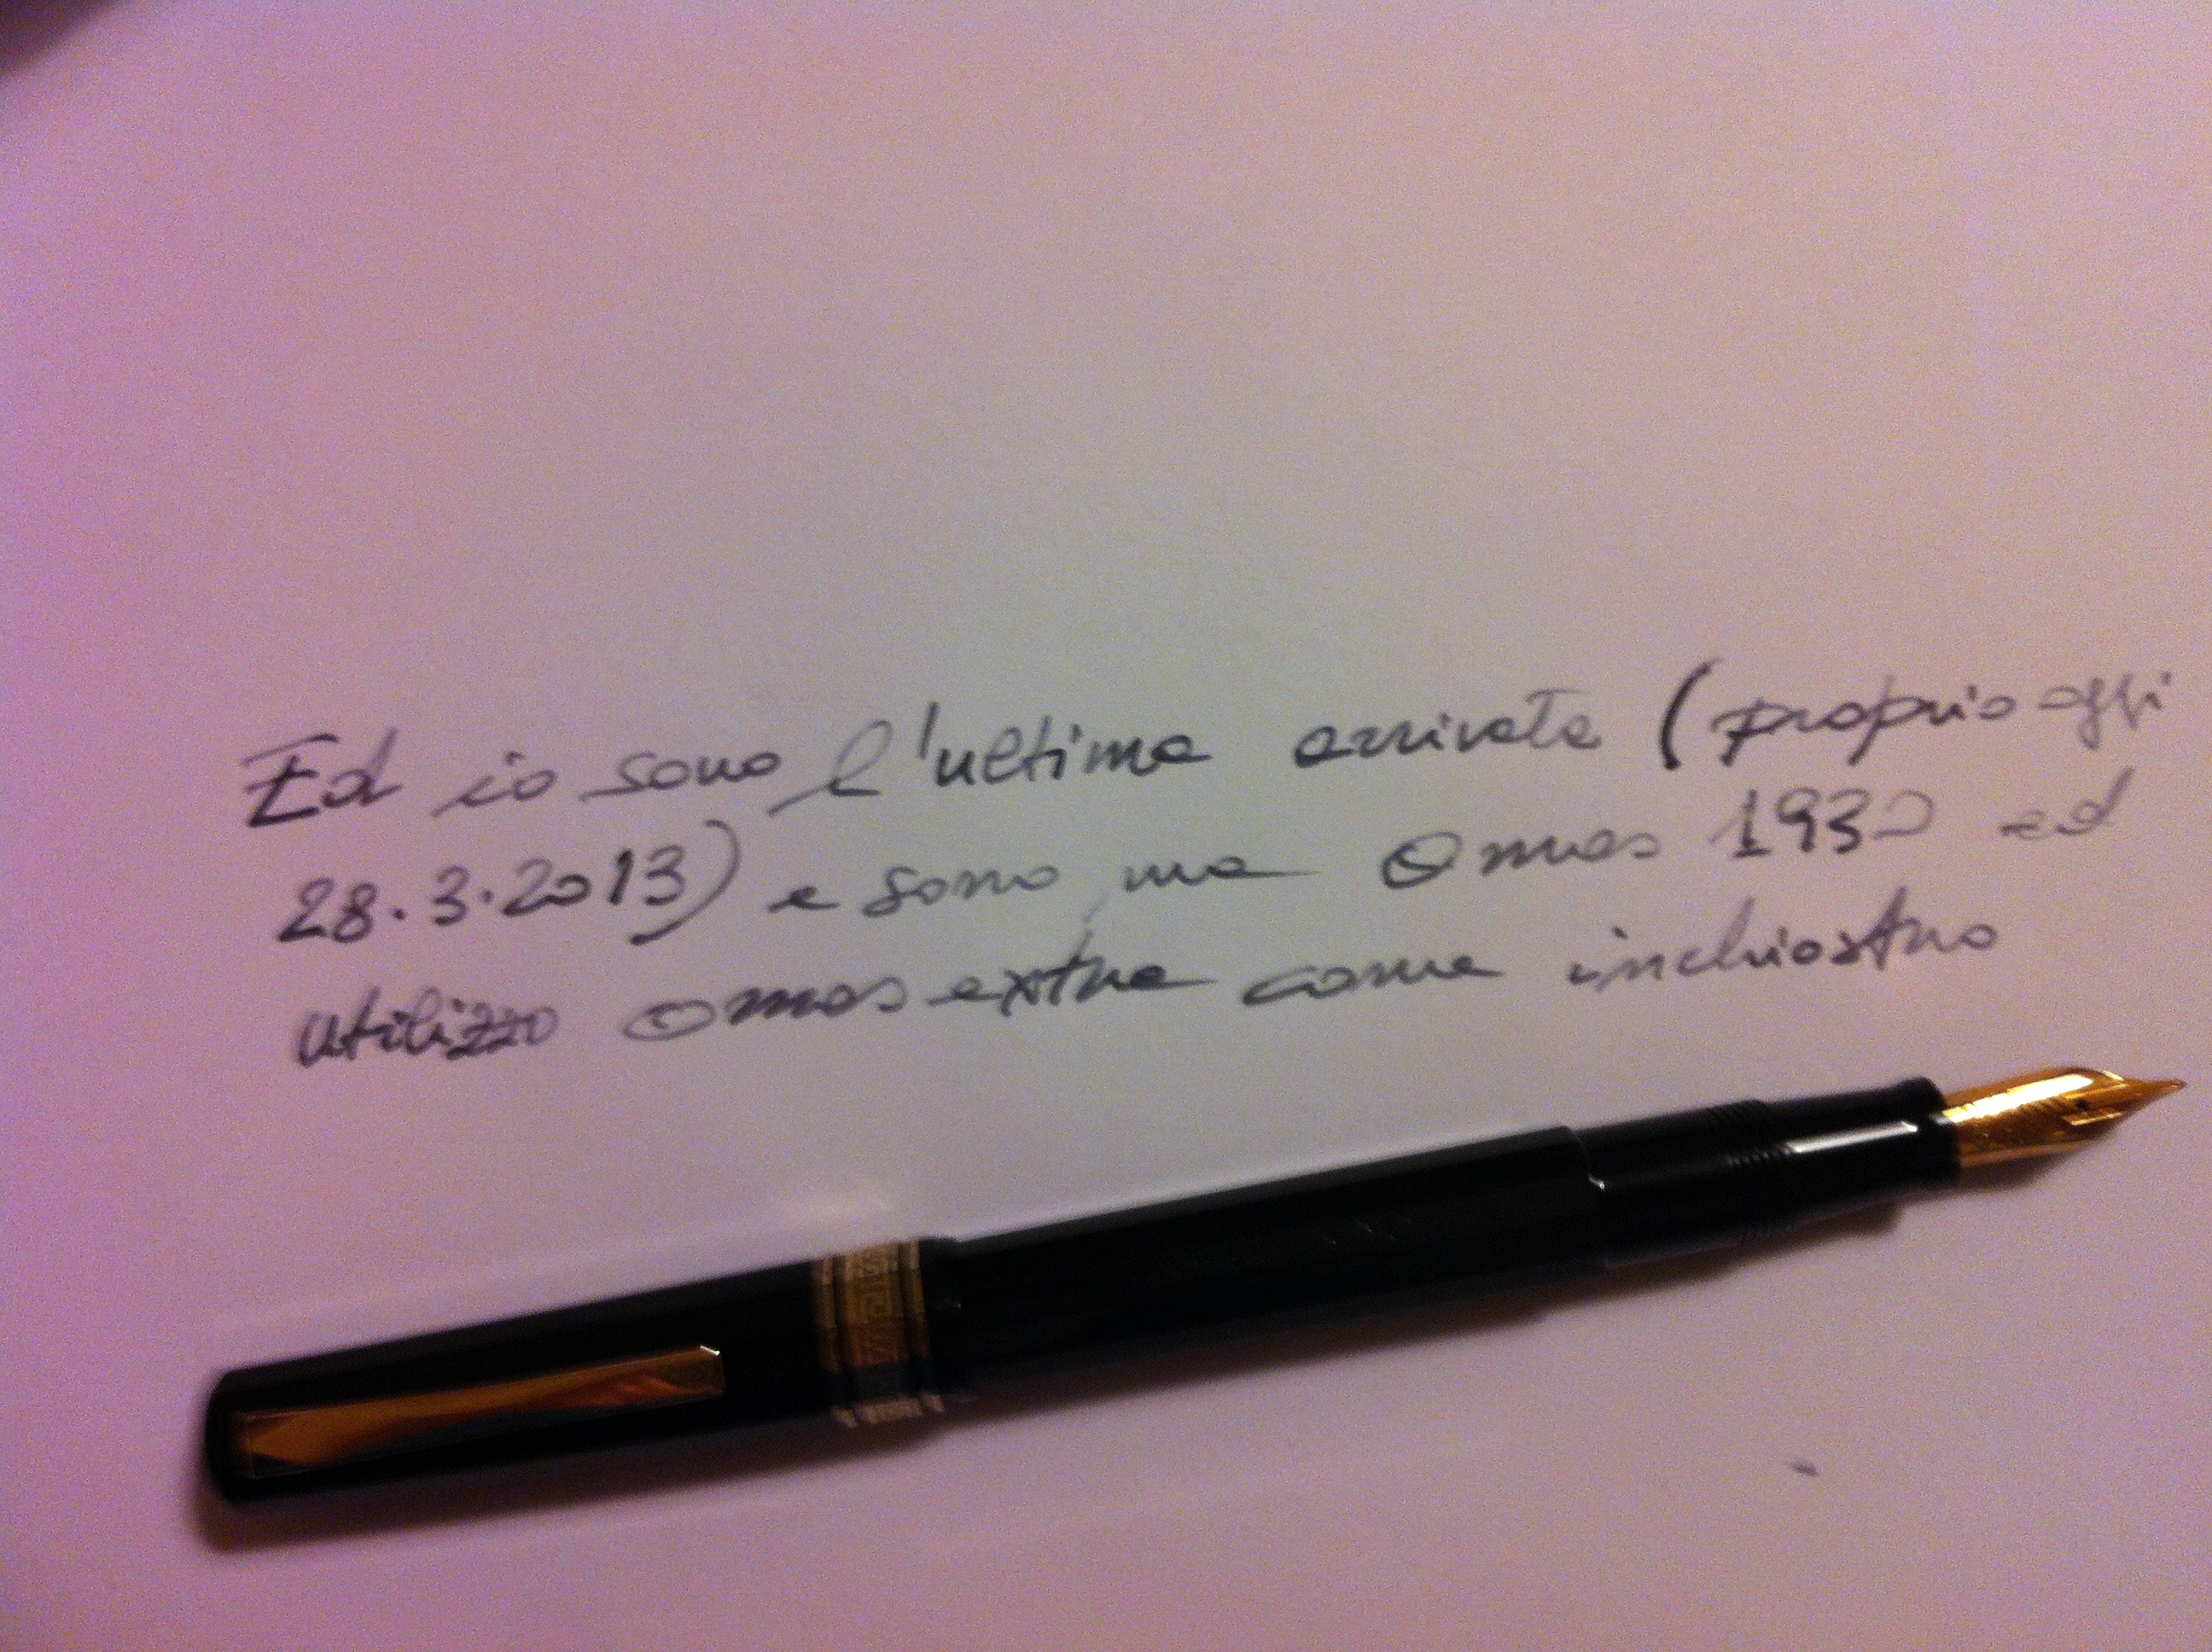 Ed io sono l'ultima arrivata (proprio oggi
28.3.2013) e sono una Omas 1930 ed
utilizzo Omas extra come inchiostro